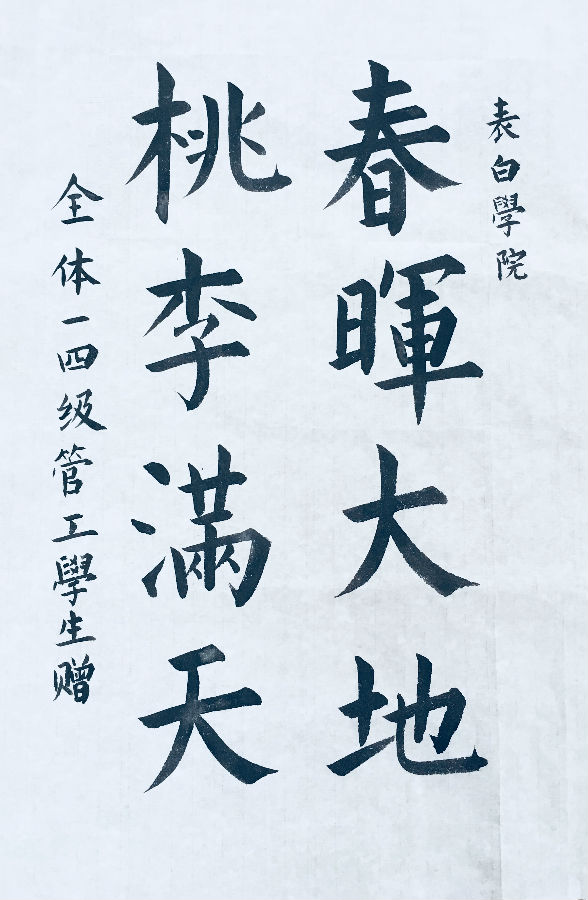 表白學院
春暉大地
桃李滿天
全体一四级管工學生赠